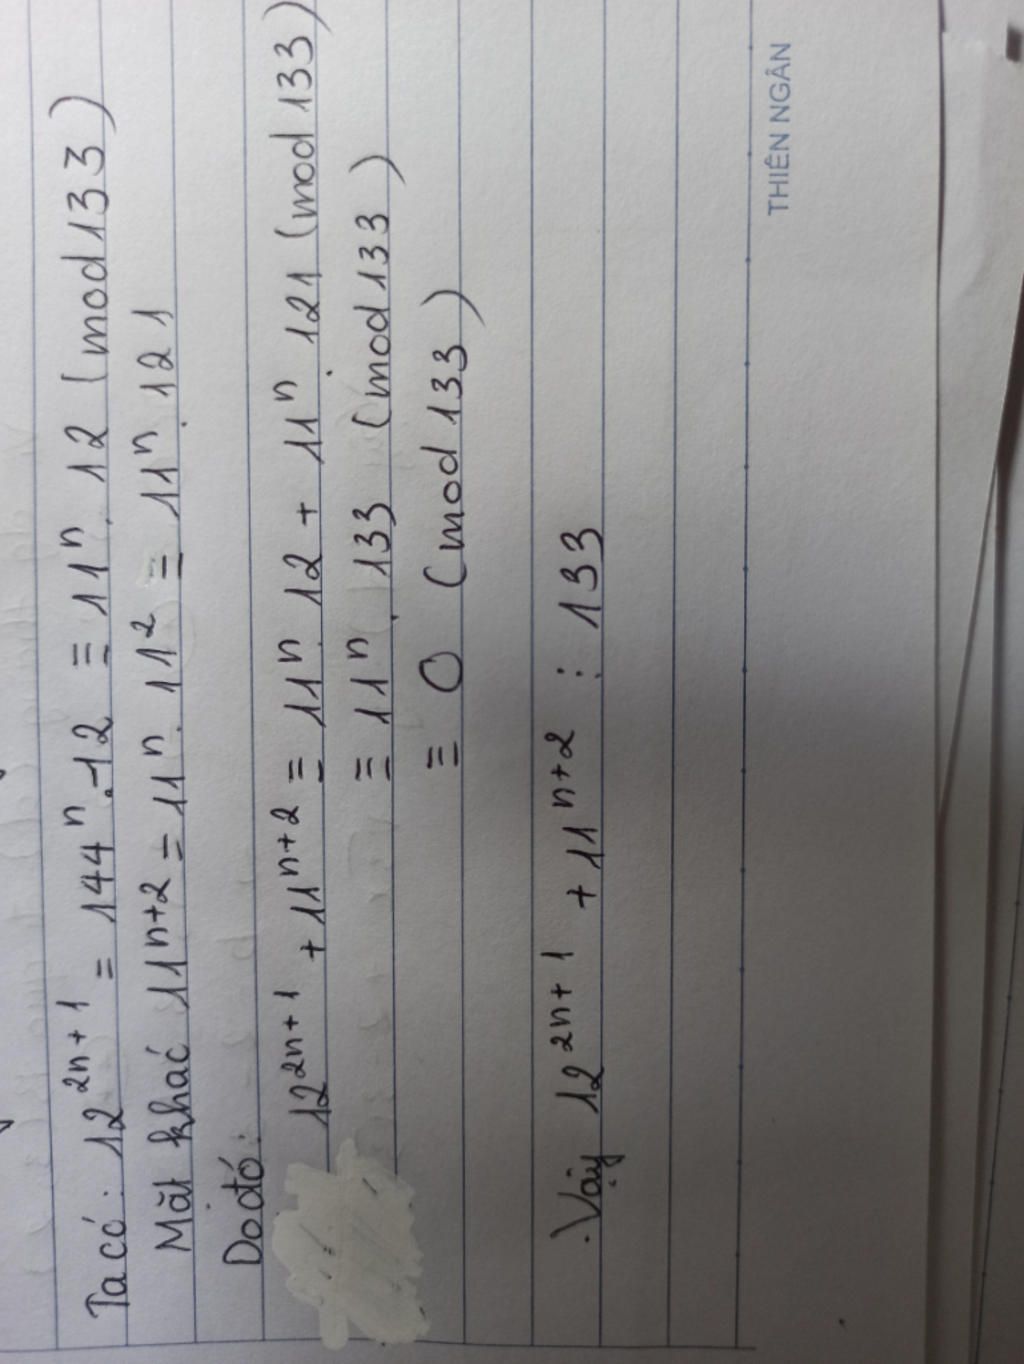 Ta có: 12^{2n+1} = 144^n . 12 ≡ 11^n . 12 (mod 133)
Mặt khác 11^{n+2} = 11^n . 11^2 = 11^n . 121
Do đó:
12^{2n+1} + 11^{n+2} ≡ 11^n . 12 + 11^n . 121 (mod 133)
≡ 11^n . 133 (mod 133)
≡ 0 (mod 133)
Vậy 12^{2n+1} + 11^{n+2} ⋮ 133
THIÊN NGÂN